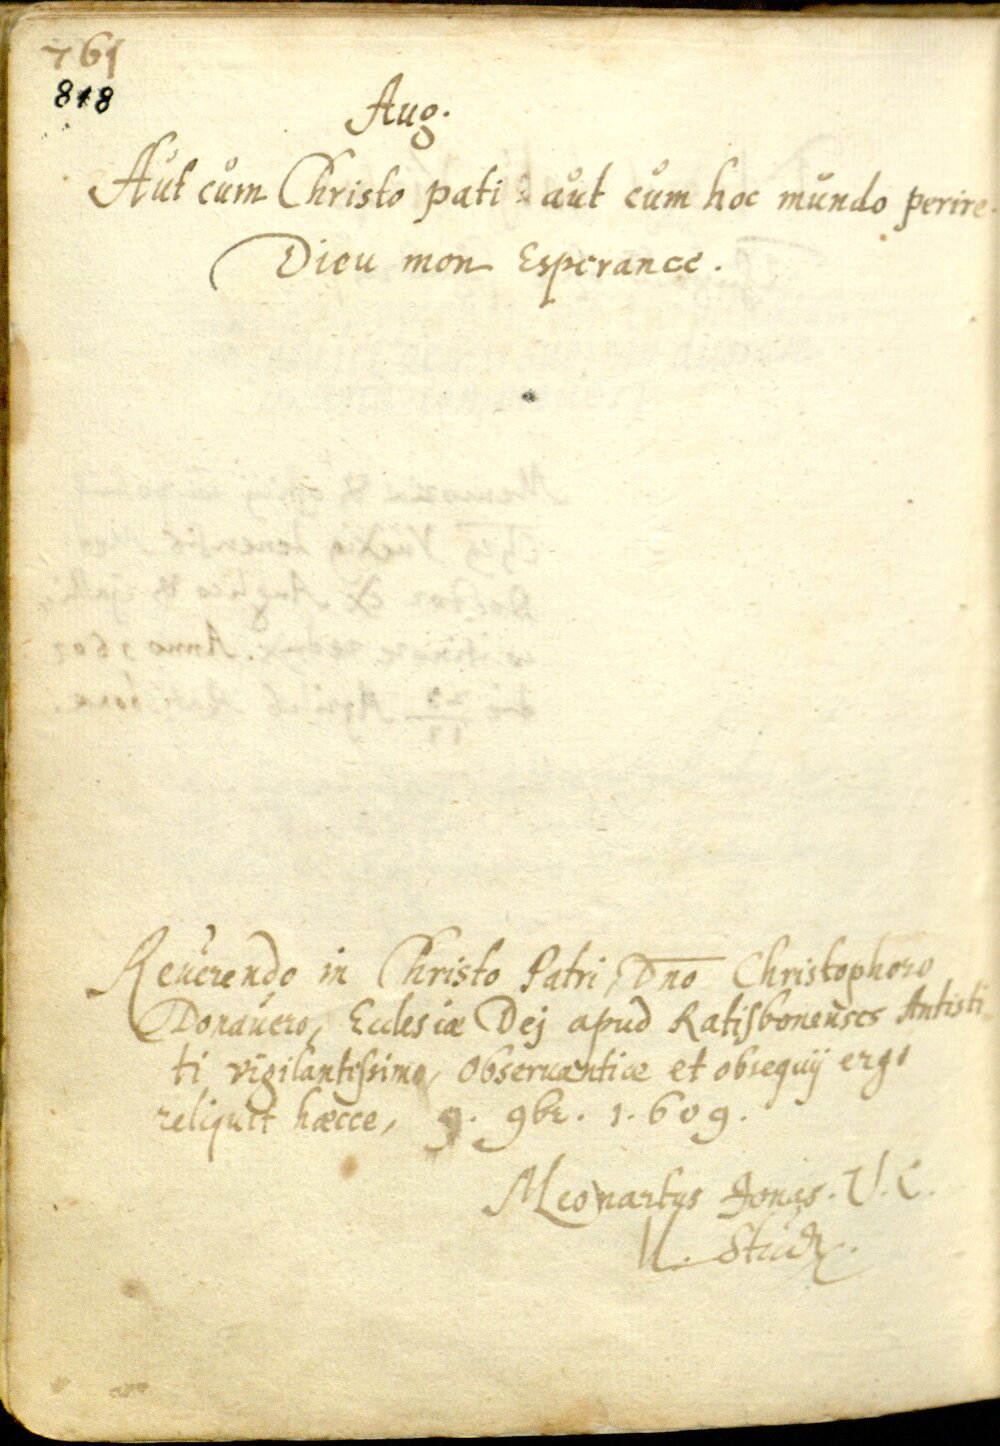 761
818
Aug.
Aut cum Christo pati: aut cum hoc mundo perire.
Dieu mon Esperance.
Reuerendo in Christo Patri, Dno Christophoro
Donauero, Ecclesiæ Dej apud Ratisbonenses Antisti
ti vigilantissimo, Observantiæ et obsequij ergo
reliquit hæcce, 9. 9br. 1.609.
Jonas. V. C.
Stud.